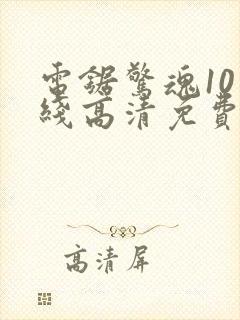 電鋸驚魂10
綫高清免費
高清屏